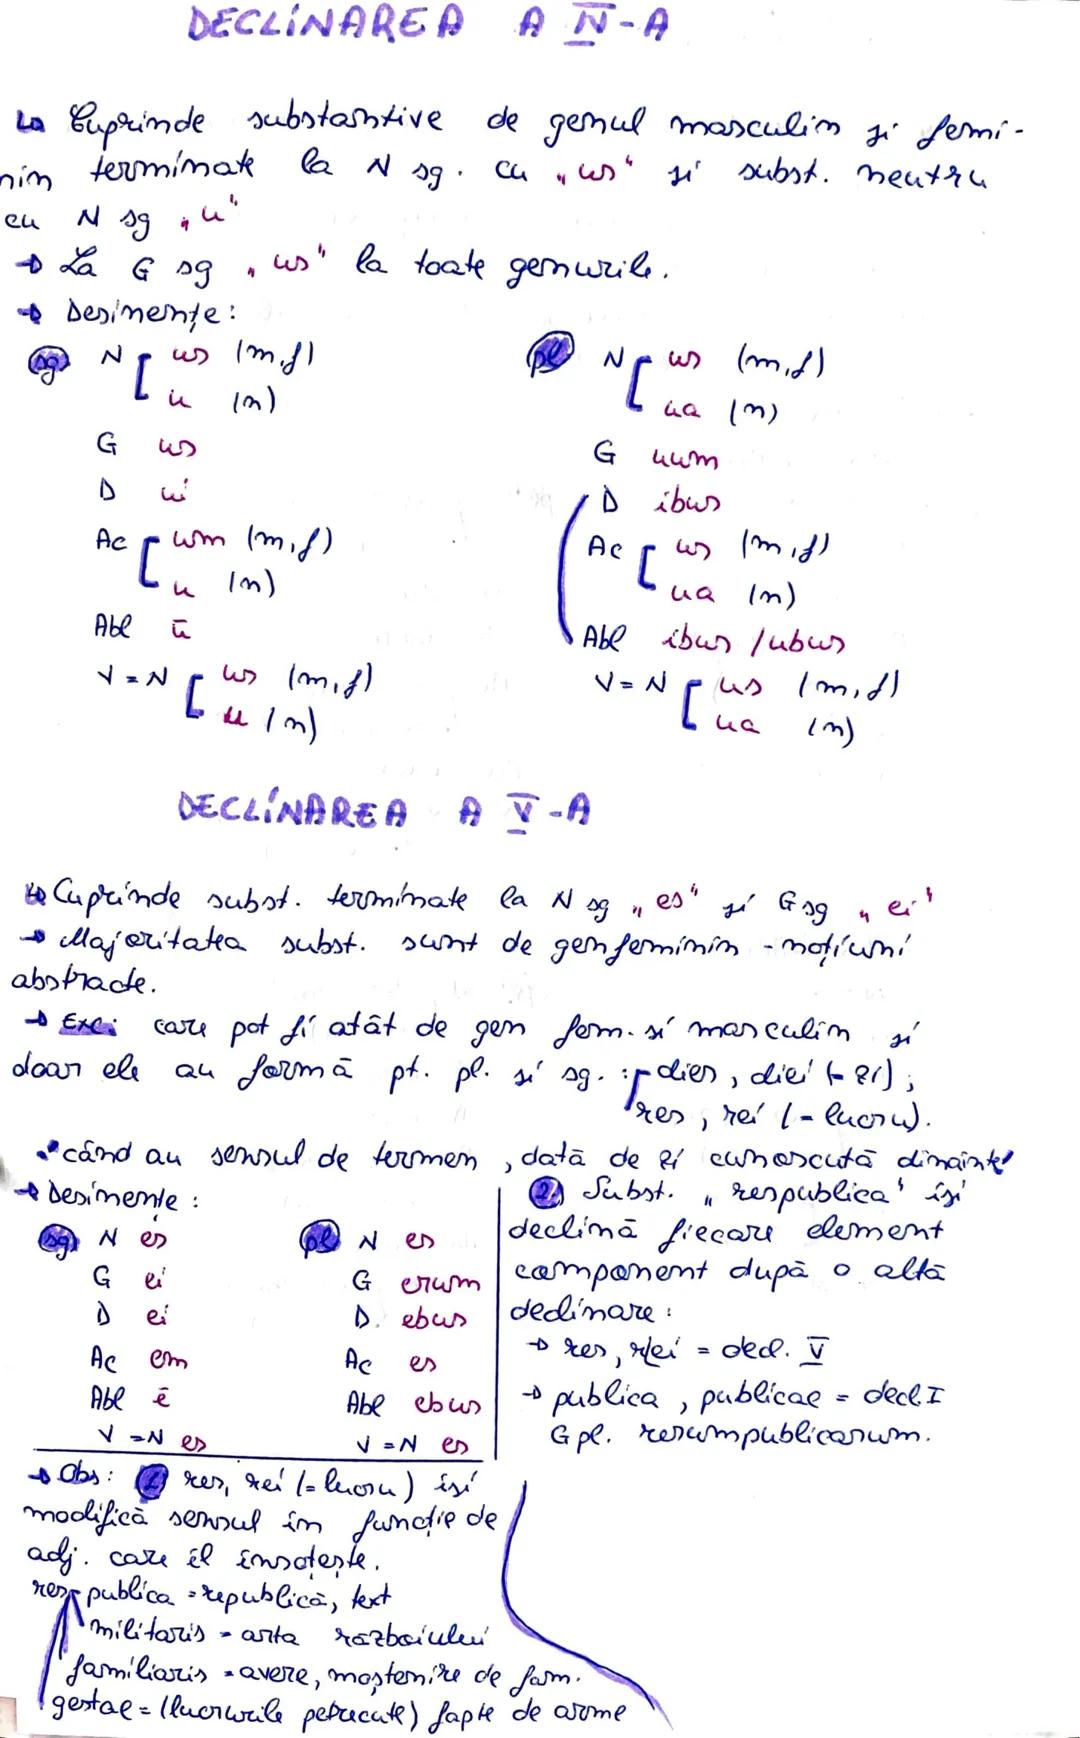 DECLINAREA A IV-A
↳ Cuprinde substantive de genul masculin și femi-
nin terminate la N sg. cu „us" și subst. neutru
cu N sg „u"
→ La G sg „us" la toate genurile.
→ Desinențe:
sg N [ us (m,f)
u (n)
G us
D ui
Ac [ um (m,f)
u (n)
Abl ū
V = N [ us (m,f)
u (n)
pl N [ us (m,f)
ua (n)
G uum
D ibus
Ac [ us (m,f)
ua (n)
Abl ibus / ubus
V = N [ us (m,f)
ua (n)
DECLINAREA A V-A
↳ Cuprinde subst. terminate la N sg „es" și G sg „ei"
→ Majoritatea subst. sunt de gen feminin - noțiuni
abstracte.
→ Exc: care pot fi atât de gen fem. si masculin și
doar ele au formă pt. pl. și sg. : dies, diei (= zi);
res, rei (= lucru).
• când au sensul de termen, dată de zi cunoscută dinainte
→ Desinențe :
sg N es
G ei
D ei
Ac em
Abl ē
V = N es
pl N es
G erum
D. ebus
Ac es
Abl ebus
V = N es
2. Subst. „respublica" își
declină fiecare element
component după o altă
declinare:
→ res, rei = decl. V
→ publica, publicae = decl. I
G pl. rerumpublicarum.
→ Obs: 1. res, rei (= lucru) își
modifică sensul în funcție de
adj. care îl însoțește.
res publica = republică, text
militaris = arta războiului
familiaris = avere, moștenire de fam.
gestae = (lucrurile petrecute) fapte de arme